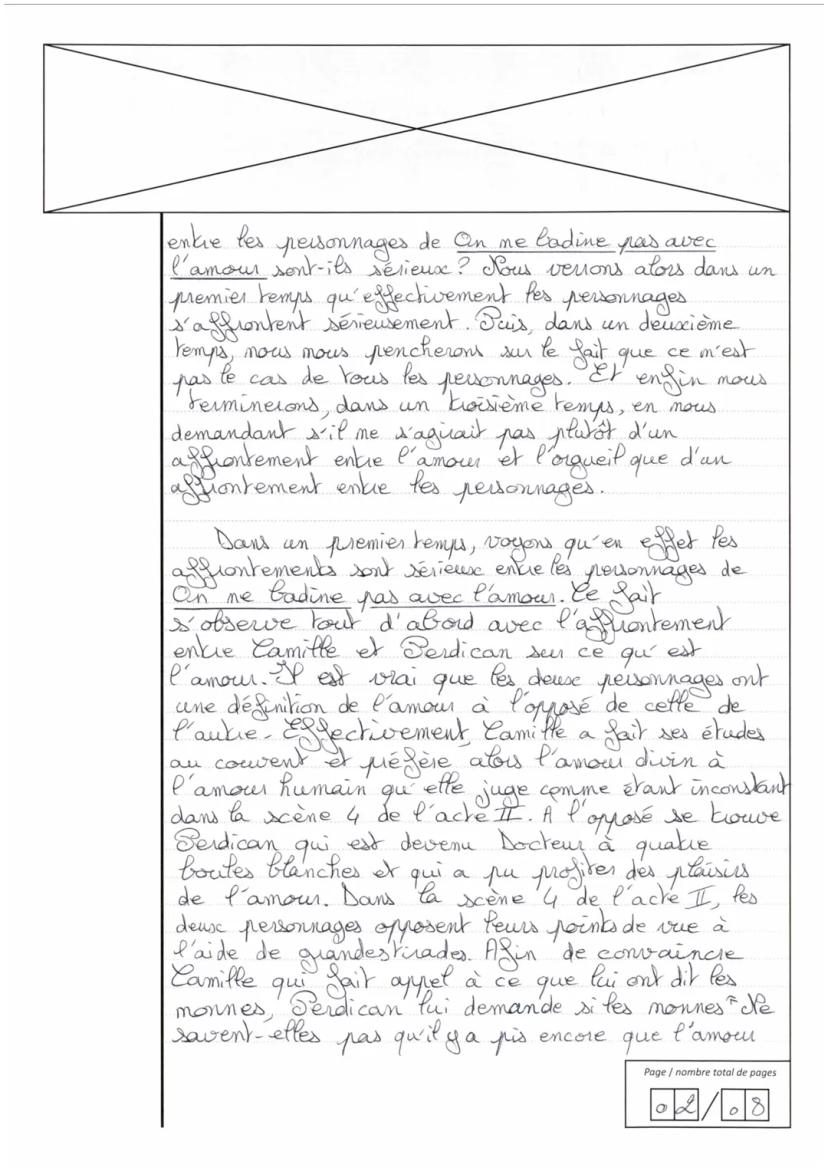 entre les personnages de On ne badine pas avec
l'amour sont-ils sérieux ? Nous verrons alors dans un
premier temps qu'effectivement les personnages
s'affrontent sérieusement. Puis, dans un deuxième
temps, nous nous pencherons sur le fait que ce n'est
pas le cas de tous les personnages. Et enfin nous
terminerons, dans un troisième temps, en nous
demandant s'il ne s'agirait pas plutôt d'un
affrontement entre l'amour et l'orgueil que d'un
affrontement entre les personnages.
Dans un premier temps, voyons qu'en effet les
affrontements sont sérieux entre les personnages de
On ne badine pas avec l'amour. Ce fait
s'observe tout d'abord avec l'affrontement
entre Camille et Perdican sur ce qu'est
l'amour. Il est vrai que les deux personnages ont
une définition de l'amour à l'opposé de celle de
l'autre. Effectivement, Camille a fait ses études
au couvent et préfère alors l'amour divin à
l'amour humain qu'elle juge comme étant inconstant
dans la scène 4 de l'acte II. A l'opposé se trouve
Perdican qui est devenu Docteur à quatre
boules blanches et qui a pu profiter des plaisirs
de l'amour. Dans la scène 4 de l'acte II, les
deux personnages opposent leurs points de vue à
l'aide de grandes tirades. Afin de convaincre
Camille qui fait appel à ce que lui ont dit les
nonnes, Perdican lui demande si les nonnes " Ne
savent-elles pas qu'il y a pis encore que l'amour
Page / nombre total de pages
02/08